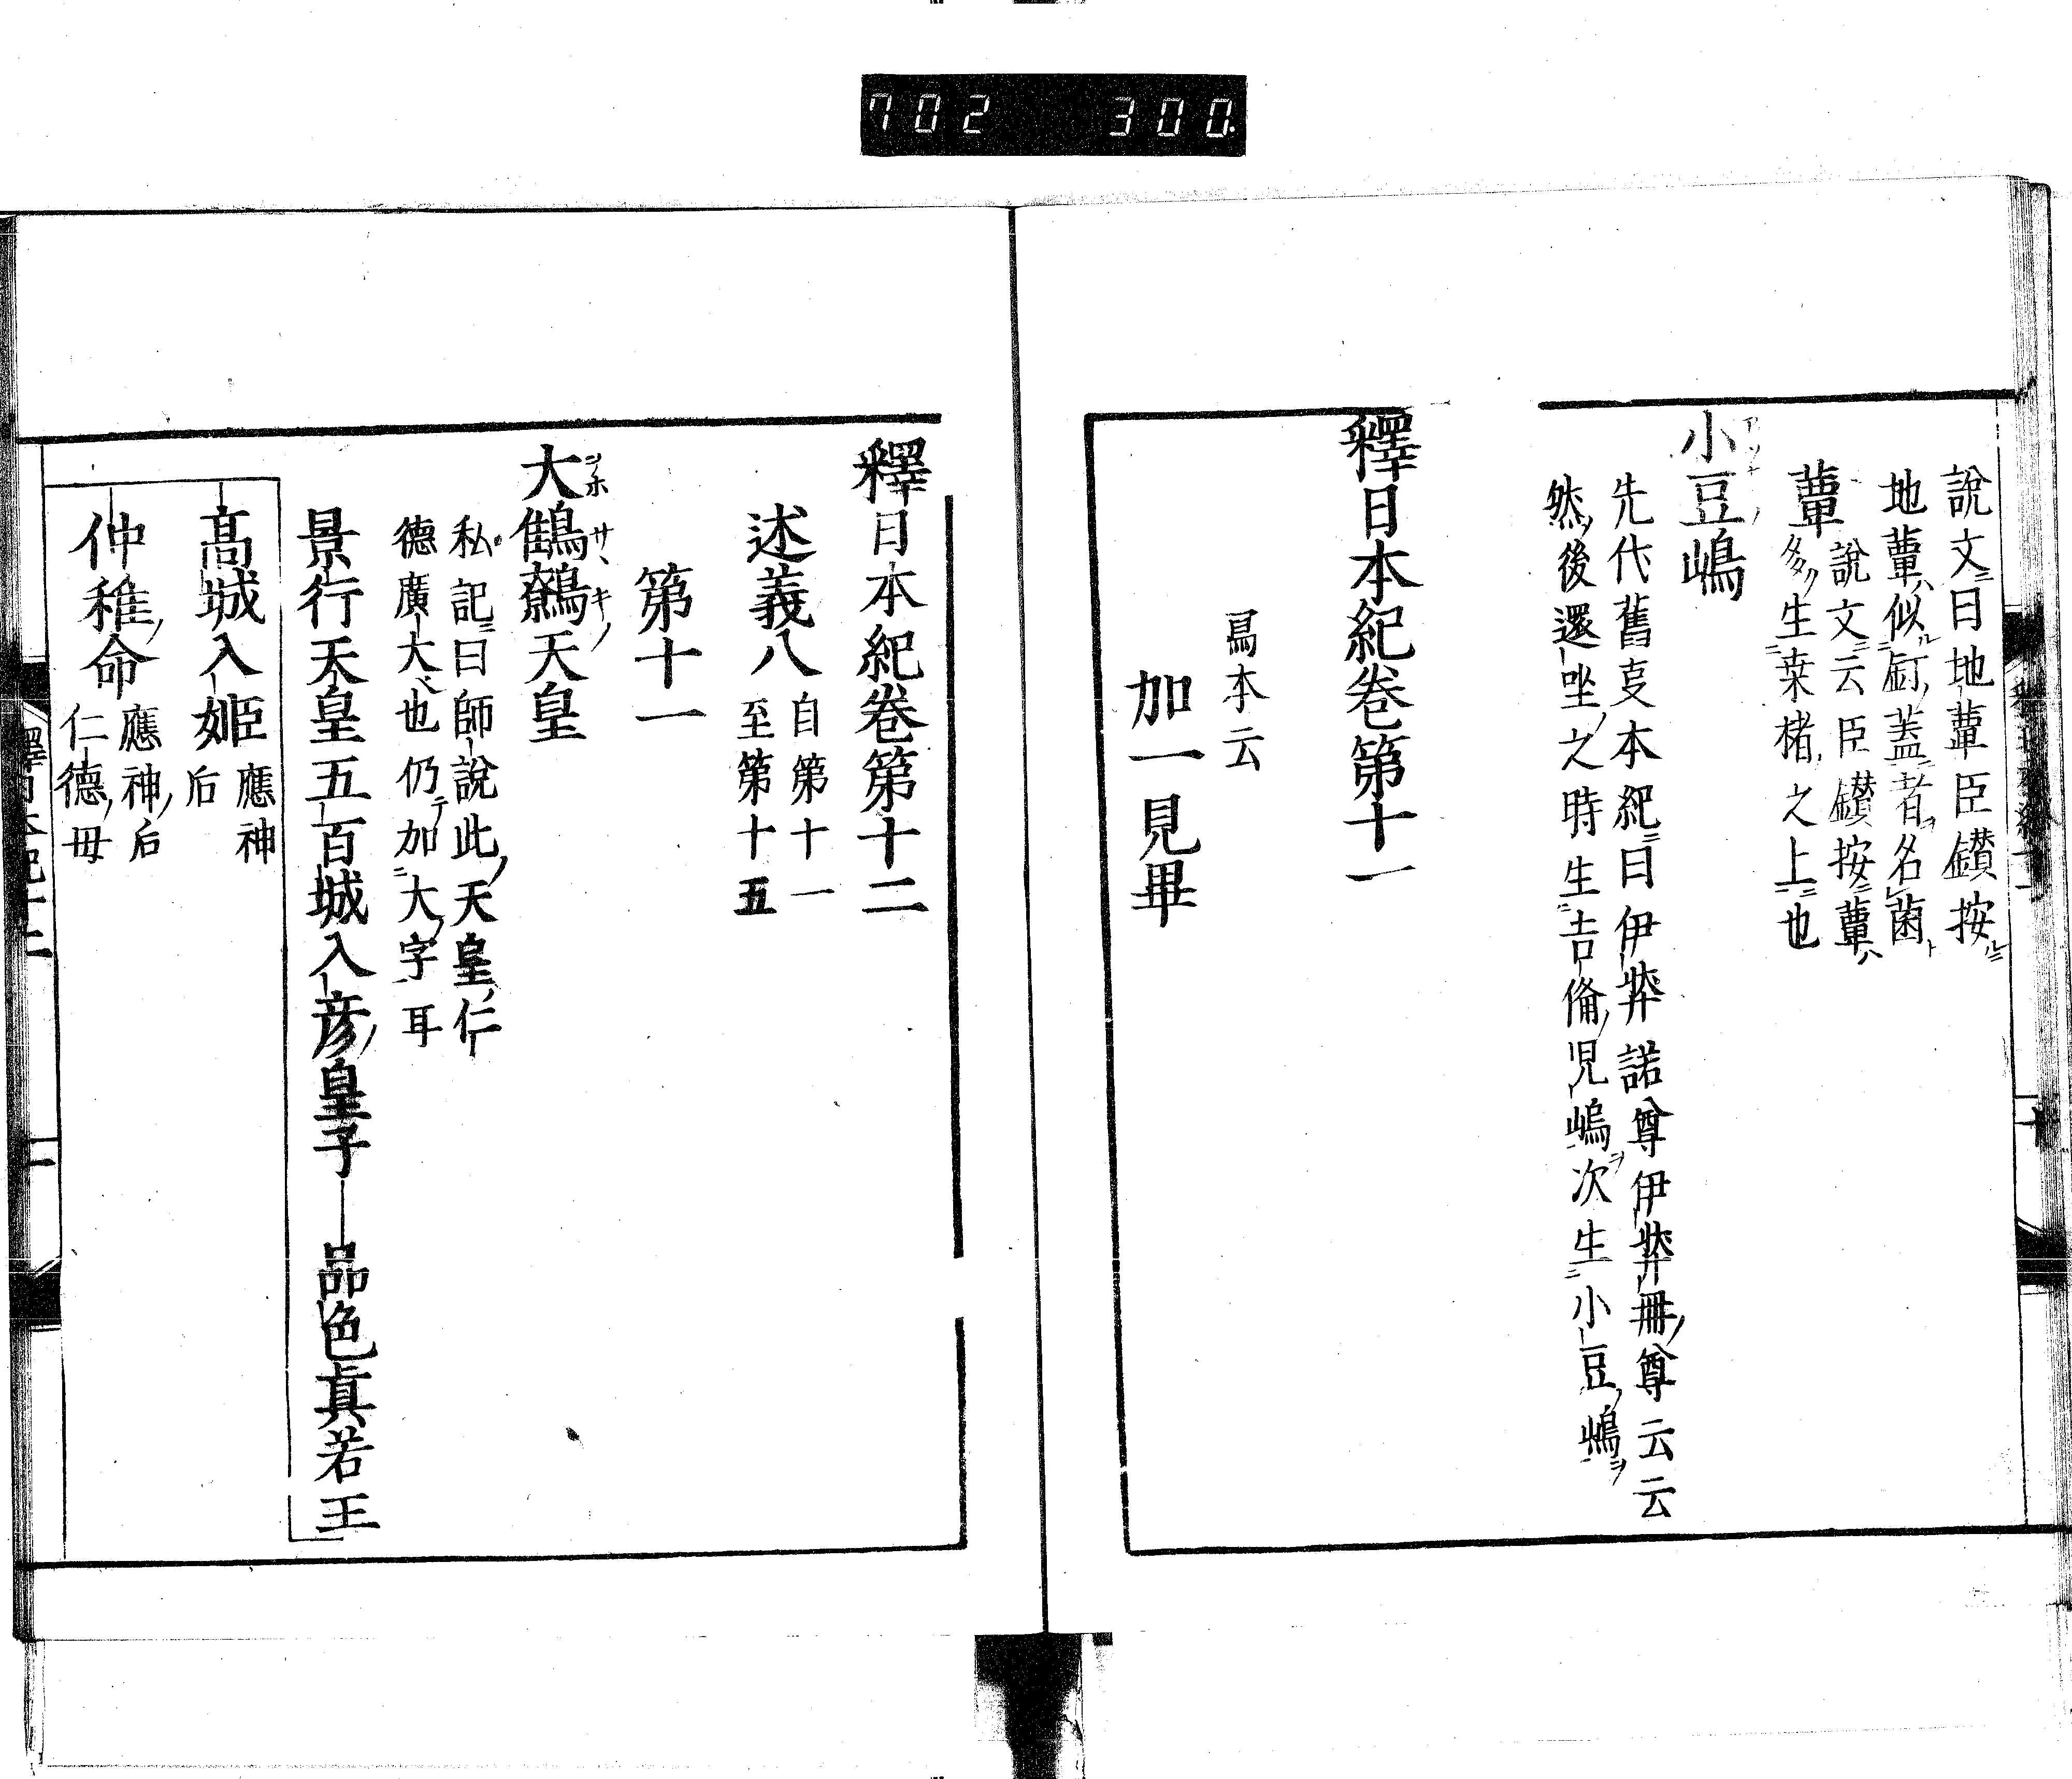 702 300
說文曰地蕈臣鍇按
地蕈似釘蓋者名菌
蕈
說文云臣鍇按蕈
多生桒楮之上也
小豆嶋
先代舊叓本紀曰伊弉諾尊伊弉冊尊云云
然後還坐之時生吉備兒嶋次生小豆嶋
釋日本紀卷第十一
冩本云
加一見畢
釋日本紀卷第十二
述義八
自第十一
至第十五
第十一
大鷦鷯天皇
私記曰師說此天皇仁
德廣大也仍加大字耳
景行天皇五百城入彦皇子 品色眞若王
髙城入姫
應神
后
仲稚命
應神后
仁德母